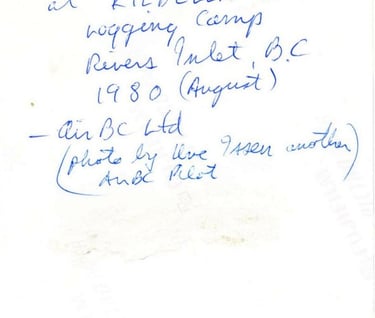 at
Logging Camp
Rivers Inlet, B.C
1980 (August)
- Air BC Ltd
(photo by another)
AirBC Pilot